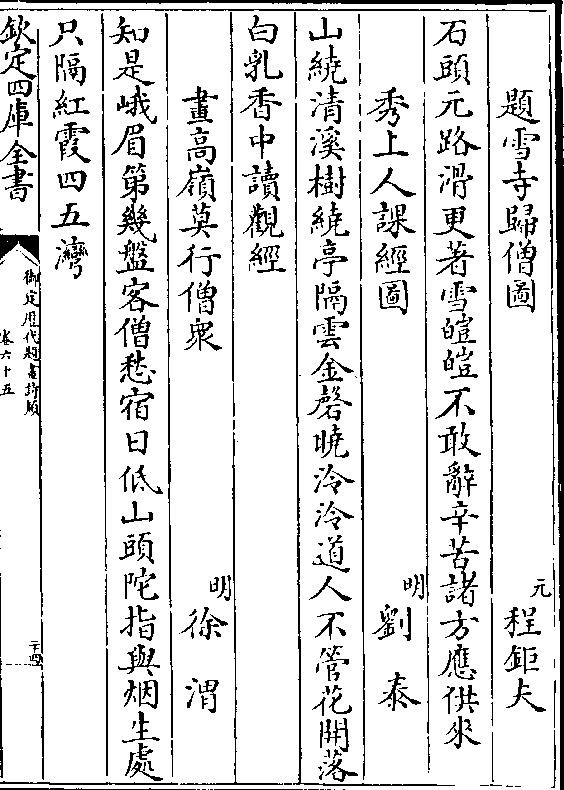 題雪寺歸僧圖 元 程鉅夫
石頭元路滑更著雪皚皚不敢辭辛苦諸方應供來
秀上人課經圖 明 劉泰
山繞清溪樹繞亭隔雲金磬曉泠泠道人不管花開落
白乳香中讀觀經
畫高嶺莫行僧衆 明 徐渭
知是峨眉第幾盤客僧愁宿日低山頭陀指與烟生處
只隔紅霞四五灣
欽定四庫全書
御定歴代題畫詩類
卷六十五
二十四